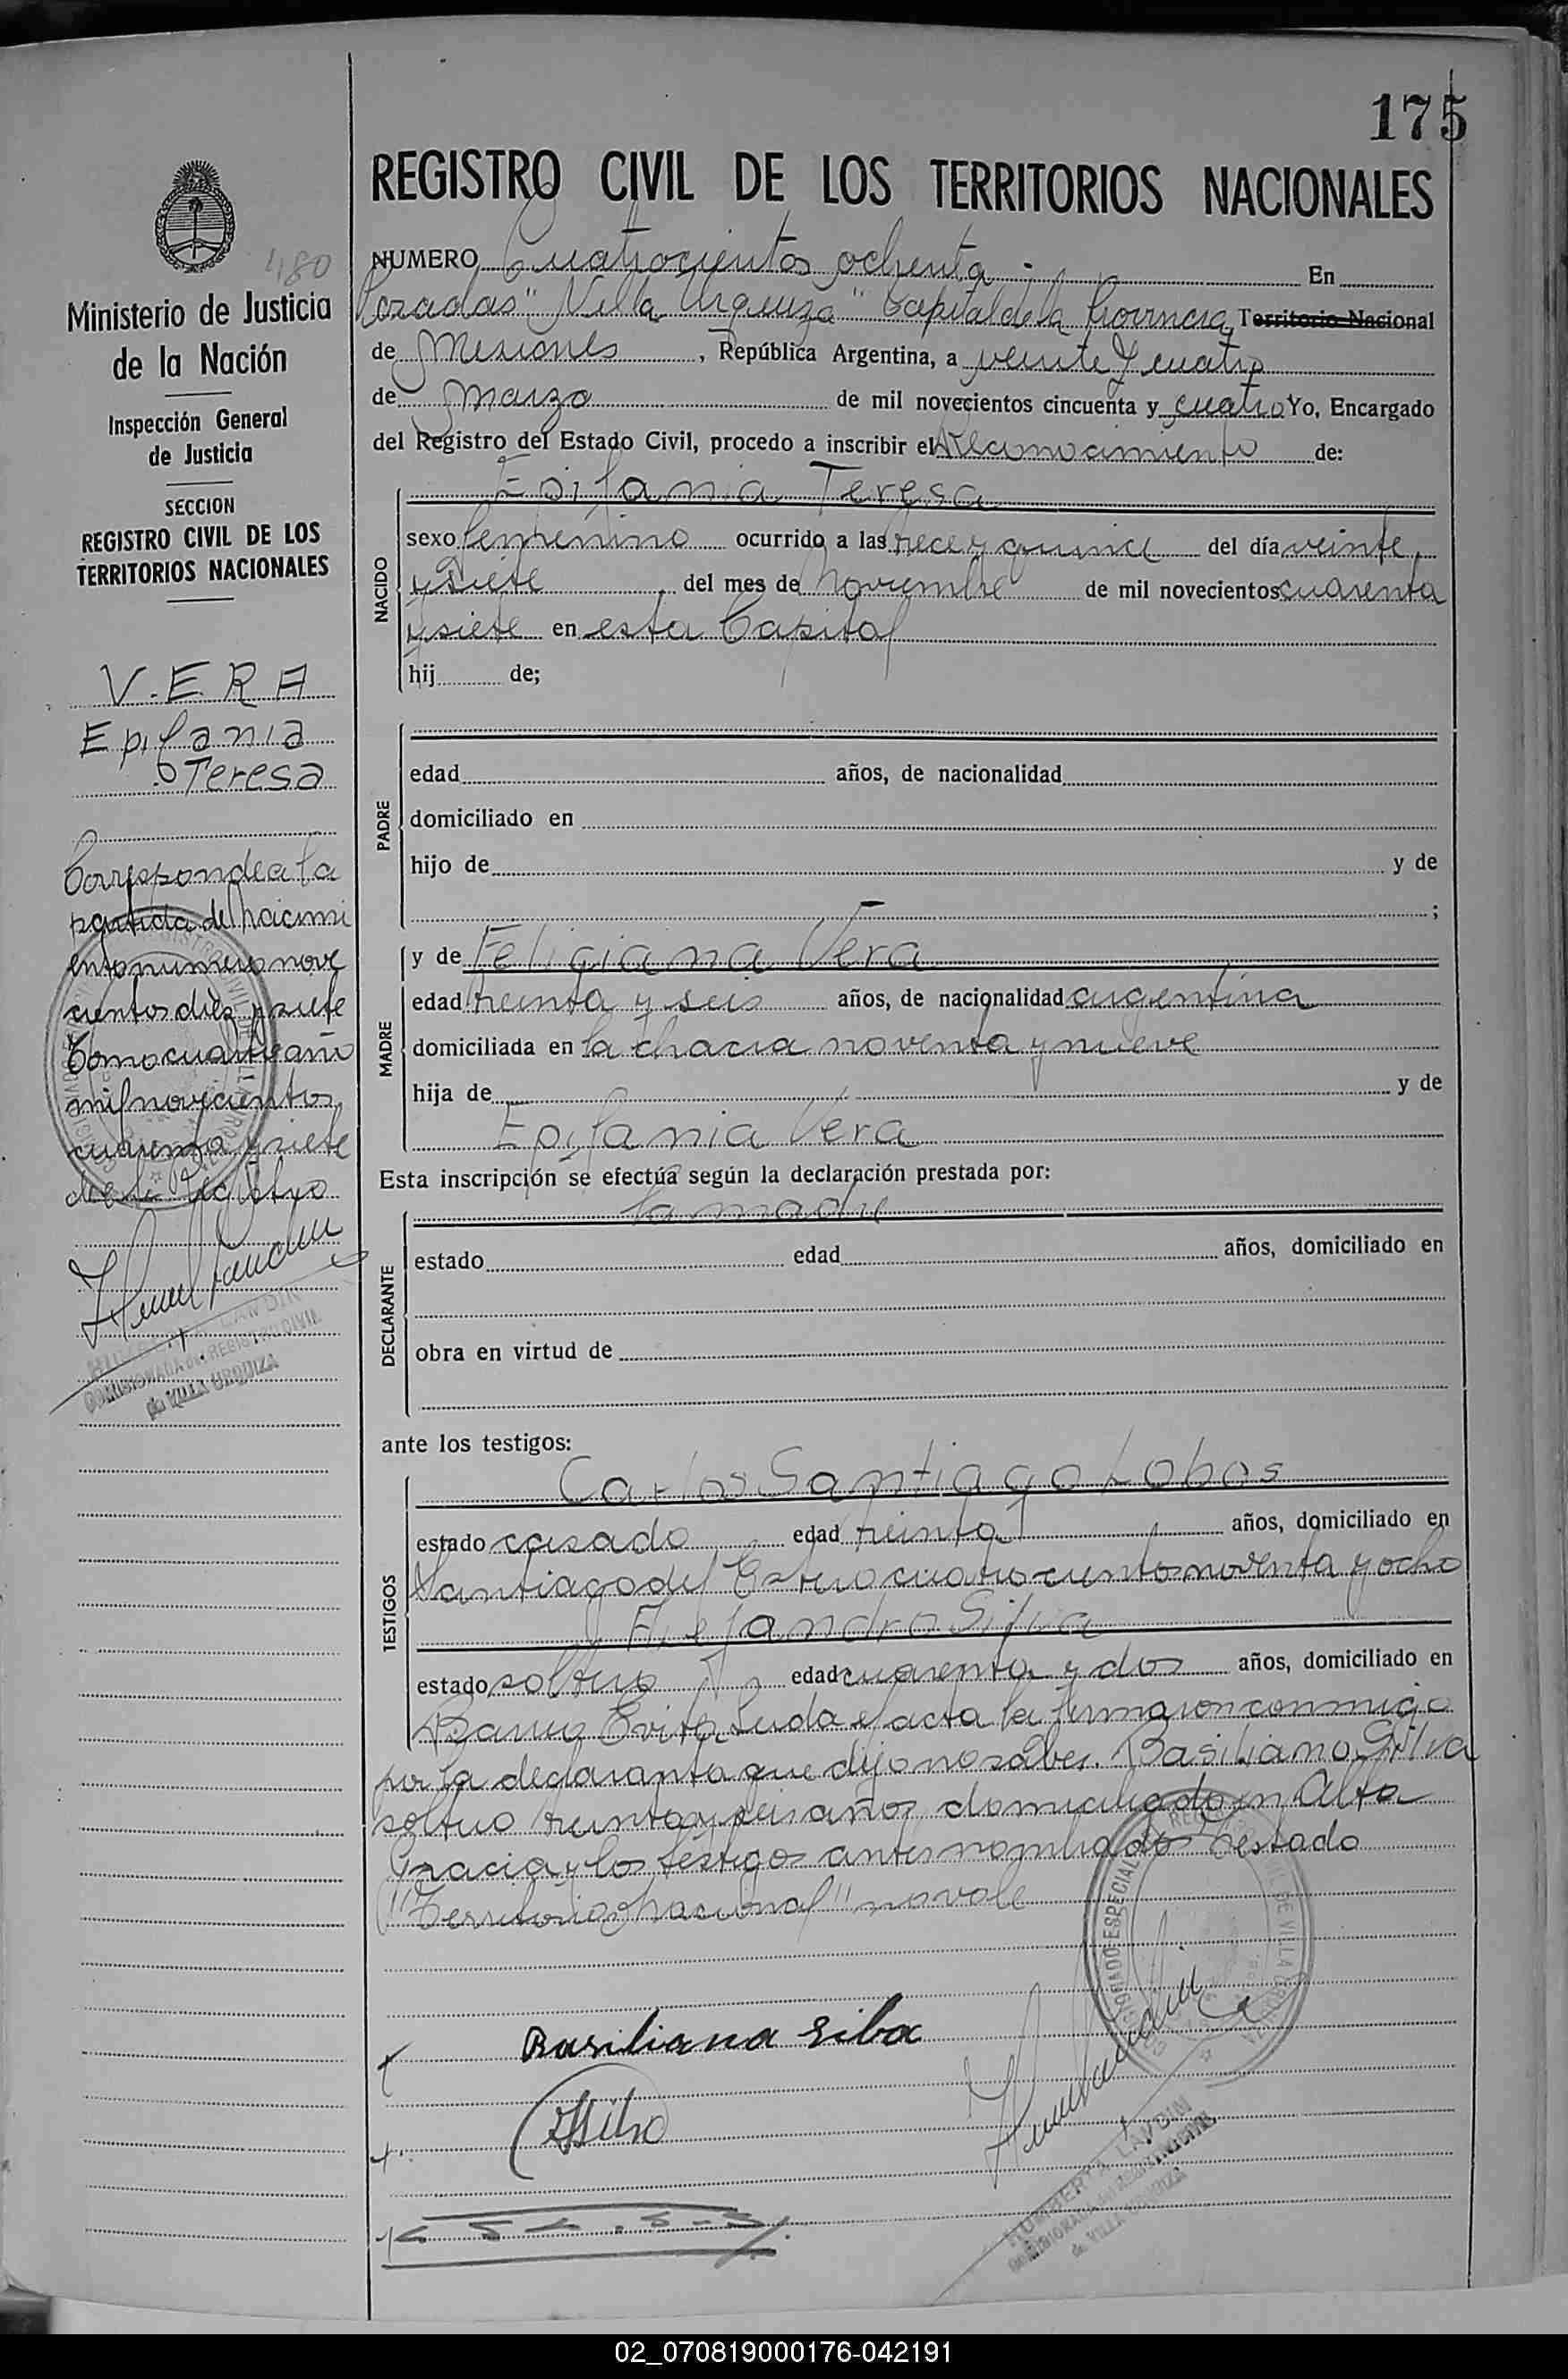 175
REGISTRO CIVIL DE LOS TERRITORIOS NACIONALES
480
Ministerio de Justicia
de la Nación
Inspección General
de Justicia
SECCION
REGISTRO CIVIL DE LOS
TERRITORIOS NACIONALES
V.E.R.A
Epifania
Teresa
Corresponde a la
partida de nacimi
ento numero nove
cientos diez y siete
Tomo cuarto año
mil novecientos
cuarenta y siete
de este registro
COMISIONADA del REGISTRO CIVIL
de VILLA URQUIZA
NUMERO Cuatrocientos ochenta En
Posadas "Villa Urquiza" Capital de la Provincia, Territorio Nacional
de Misiones, República Argentina, a veinte y cuatro
de marzo de mil novecientos cincuenta y cuatro Yo, Encargado
del Registro del Estado Civil, procedo a inscribir el Reconocimiento de:
NACIDO
Epifania Teresa
sexo femenino ocurrido a las trece y quince del día veinte
y siete del mes de Noviembre de mil novecientos cuarenta
y siete en esta Capital
hij de;
PADRE
edad años, de nacionalidad
domiciliado en
hijo de y de
;
MADRE
y de Feliciana Vera
edad treinta y seis años, de nacionalidad argentina
domiciliada en la chacra noventa y nueve
hija de y de
Epifania Vera
Esta inscripción se efectúa según la declaración prestada por:
DECLARANTE
la madre
estado edad años, domiciliado en
obra en virtud de
ante los testigos:
TESTIGOS
Carlos Santiago Lobos
estado casado edad treinta años, domiciliado en
Santiago del Estero cuatrocientos noventa y ocho
Alejandro Silva
estado soltero edad cuarenta y dos años, domiciliado en
Barrio Evita Leida el acta la firmaron conmigo
por la declarante que dijo no saber. Basiliano Silva
soltero treinta y seis años domiciliado en Alta
Gracia y los testigos antes nombrados Testado
"Territorio Nacional" no vale
Basiliana Silva
HUMBERTA LANDIN
COMISIONADA del REGISTRO CIVIL
de VILLA URQUIZA
02_070819000176-042191